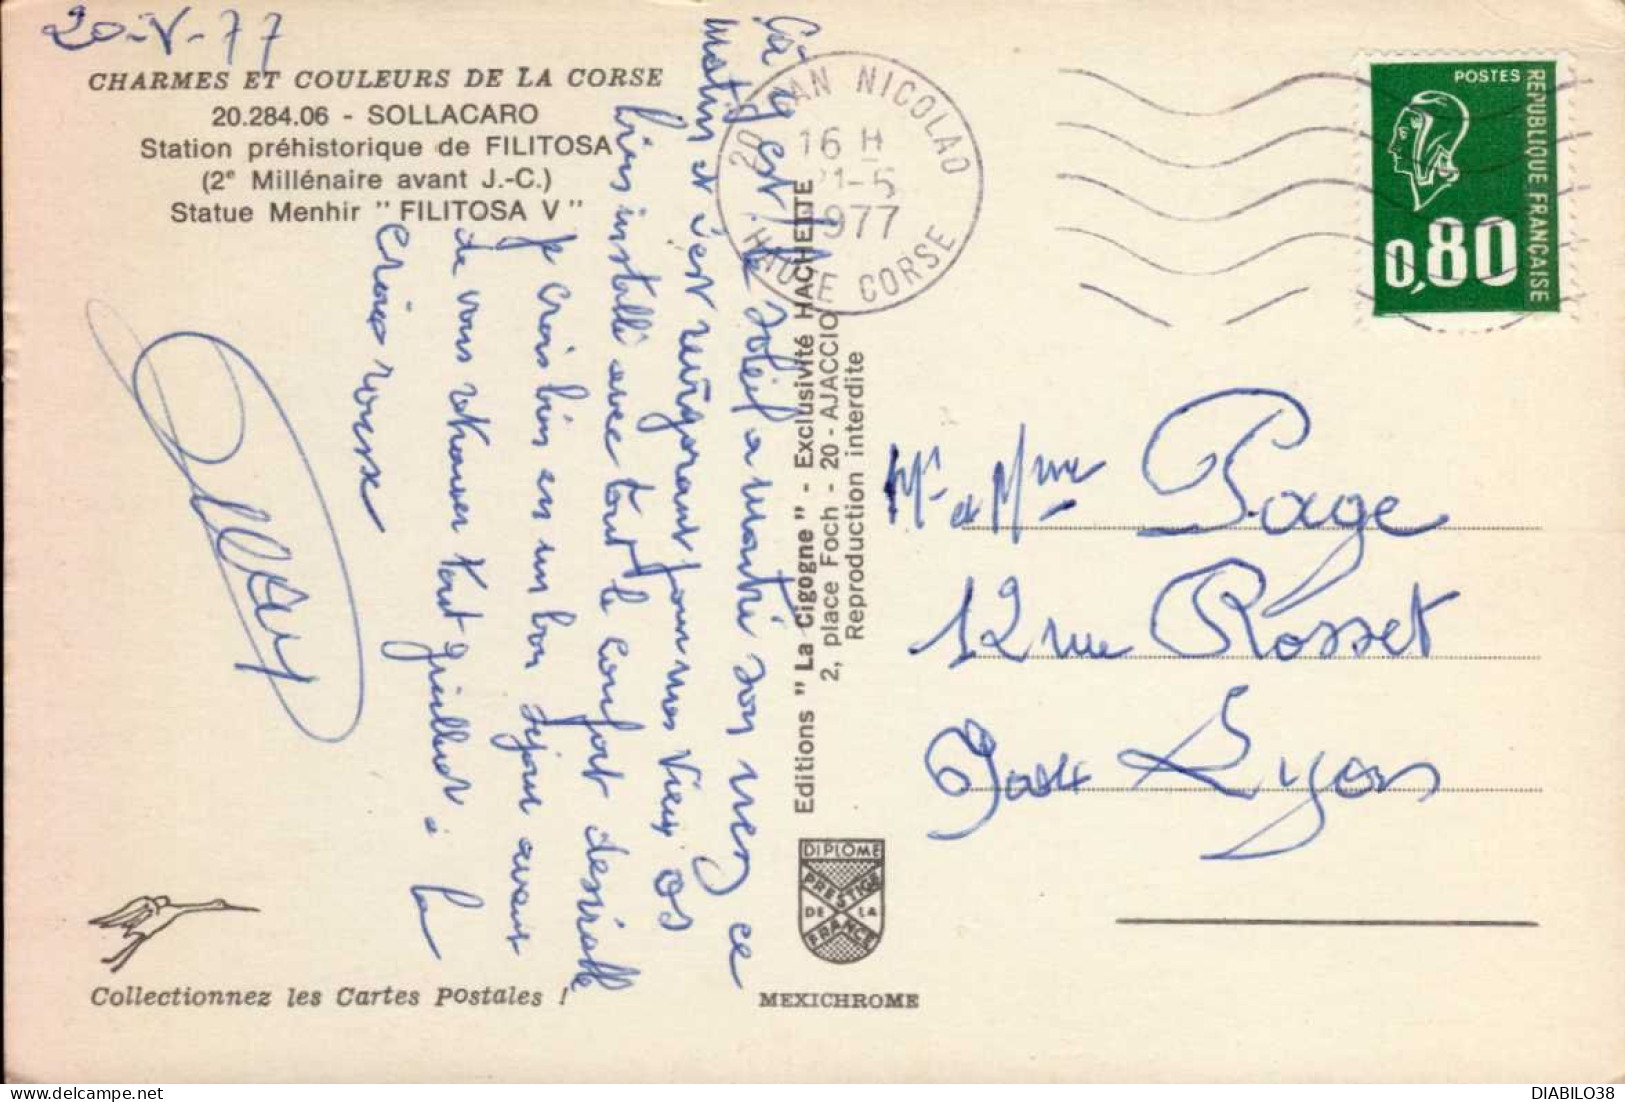 20-V-77
CHARMES ET COULEURS DE LA CORSE
20.284.06 - SOLLACARO
Station préhistorique de FILITOSA
(2e Millénaire avant J.-C.)
Statue Menhir " FILITOSA V "
Ça y est, le soleil a montré son nez ce
matin et c'est revigorant pour nos vieux os
bien installé avec tout le confort désirable
je crois bien en un bon séjour avant
de vous retrouver tout guilleret à la
Croix rousse
Collectionnez les Cartes Postales !
Editions " La Cigogne " - Exclusivité HACHETTE
2, place Foch - 20 - AJACCIO
Reproduction interdite
DIPLOME
PRESTIGE
DE LA
FRANCE
MEXICHROME
20 SAN NICOLAO
16 H
21-5
1977
HAUTE CORSE
POSTES
REPUBLIQUE FRANÇAISE
0,80
Mr et Mme Page
12 rue Rosset
69004 Lyon
DIABILO38